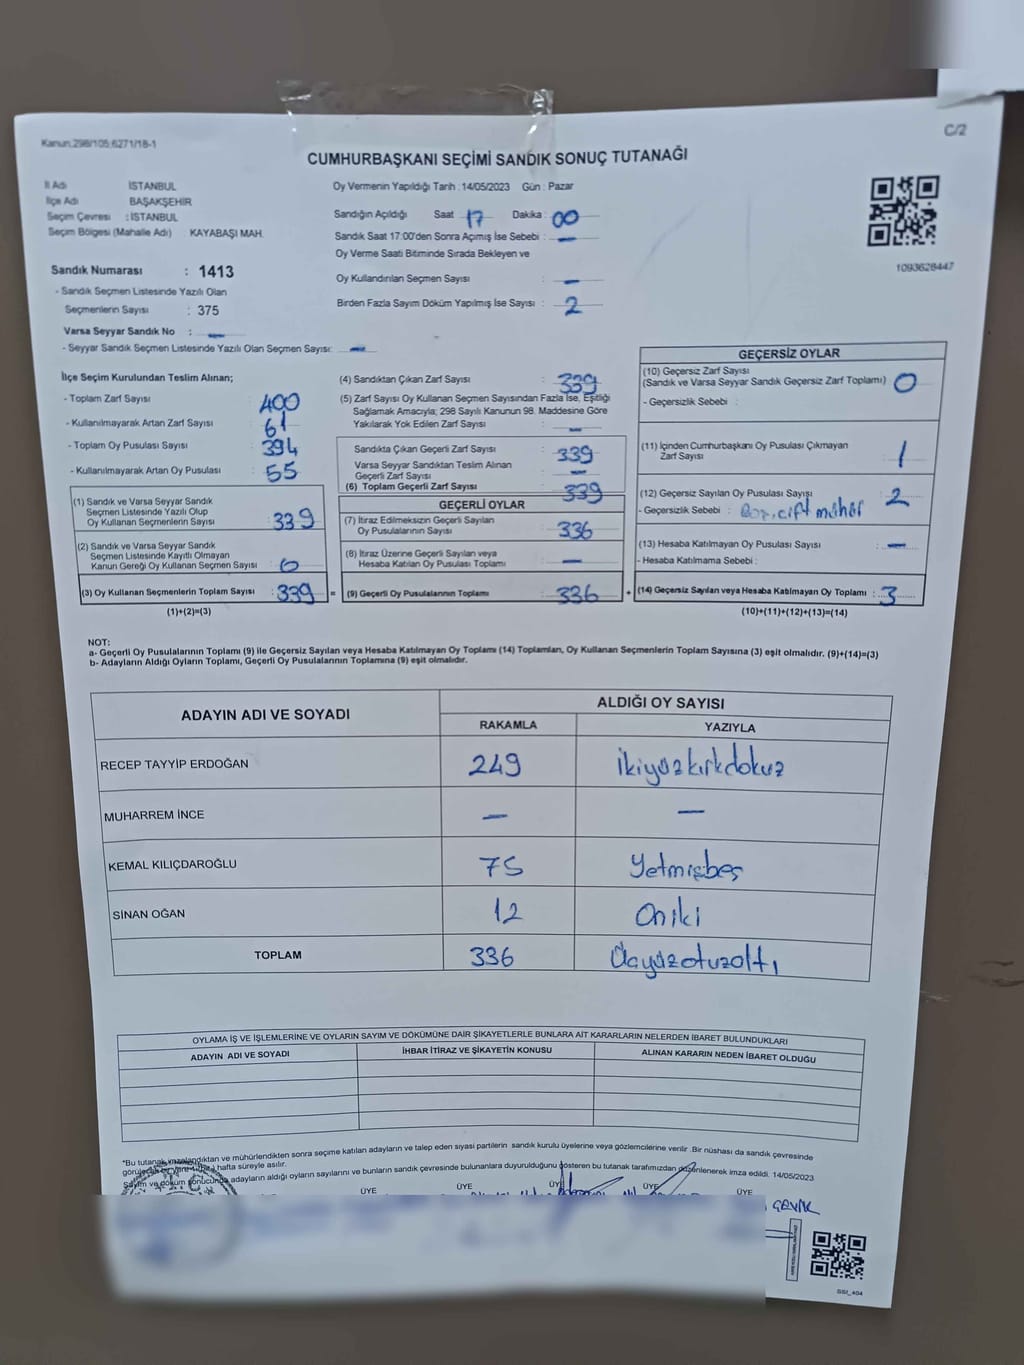 C/2
Kanun;298/105;6271/18-1
CUMHURBAŞKANI SEÇİMİ SANDIK SONUÇ TUTANAĞI
İl Adı İSTANBUL
İlçe Adı BAŞAKŞEHİR
Seçim Çevresi : İSTANBUL
Seçim Bölgesi (Mahalle Adı) : KAYABAŞI MAH.
Sandık Numarası : 1413
- Sandık Seçmen Listesinde Yazılı Olan
Seçmenlerin Sayısı : 375
Varsa Seyyar Sandık No : —
- Seyyar Sandık Seçmen Listesinde Yazılı Olan Seçmen Sayısı: —
Oy Vermenin Yapıldığı Tarih : 14/05/2023 Gün : Pazar
Sandığın Açıldığı Saat 17 Dakika : 00
Sandık Saat 17:00'den Sonra Açımış İse Sebebi : —
Oy Verme Saati Bitiminde Sırada Bekleyen ve
Oy Kullandırılan Seçmen Sayısı : —
Birden Fazla Sayım Döküm Yapılmış İse Sayısı : 2
1093628447
İlçe Seçim Kurulundan Teslim Alınan;
- Toplam Zarf Sayısı : 400
- Kullanılmayarak Artan Zarf Sayısı : 61
- Toplam Oy Pusulası Sayısı : 394
- Kullanılmayarak Artan Oy Pusulası : 55
(1) Sandık ve Varsa Seyyar Sandık
Seçmen Listesinde Yazılı Olup
Oy Kullanan Seçmenlerin Sayısı : 339
(2) Sandık ve Varsa Seyyar Sandık
Seçmen Listesinde Kayıtlı Olmayan
Kanun Gereği Oy Kullanan Seçmen Sayısı : 0
(3) Oy Kullanan Seçmenlerin Toplam Sayısı : 339 =
(1)+(2)=(3)
(4) Sandıktan Çıkan Zarf Sayısı : 339
(5) Zarf Sayısı Oy Kullanan Seçmen Sayısından Fazla İse, Eşitliği
Sağlamak Amacıyla; 298 Sayılı Kanunun 98. Maddesine Göre
Yakılarak Yok Edilen Zarf Sayısı : —
Sandıkta Çıkan Geçerli Zarf Sayısı : 339
Varsa Seyyar Sandıktan Teslim Alınan
Geçerli Zarf Sayısı : —
(6) Toplam Geçerli Zarf Sayısı : 339
GEÇERLİ OYLAR
(7) İtiraz Edilmeksizin Geçerli Sayılan
Oy Pusulalarının Sayısı : 336
(8) İtiraz Üzerine Geçerli Sayılan veya
Hesaba Katılan Oy Pusulası Toplamı : —
(9) Geçerli Oy Pusulalarının Toplamı : 336 +
GEÇERSİZ OYLAR
(10) Geçersiz Zarf Sayısı
(Sandık ve Varsa Seyyar Sandık Geçersiz Zarf Toplamı) : 0
- Geçersizlik Sebebi :
(11) İçinden Cumhurbaşkanı Oy Pusulası Çıkmayan
Zarf Sayısı : 1
(12) Geçersiz Sayılan Oy Pusulası Sayısı : 2
- Geçersizlik Sebebi : çift mühür
(13) Hesaba Katılmayan Oy Pusulası Sayısı : —
- Hesaba Katılmama Sebebi :
(14) Geçersiz Sayılan veya Hesaba Katılmayan Oy Toplamı : 3
(10)+(11)+(12)+(13)=(14)
NOT:
a- Geçerli Oy Pusulalarının Toplamı (9) ile Geçersiz Sayılan veya Hesaba Katılmayan Oy Toplamı (14) Toplamları, Oy Kullanan Seçmenlerin Toplam Sayısına (3) eşit olmalıdır. (9)+(14)=(3)
b- Adayların Aldığı Oyların Toplamı, Geçerli Oy Pusulalarının Toplamına (9) eşit olmalıdır.
ADAYIN ADI VE SOYADI ALDIĞI OY SAYISI
RAKAMLA YAZIYLA
RECEP TAYYİP ERDOĞAN 249 ikiyüzkırkdokuz
MUHARREM İNCE — —
KEMAL KILIÇDAROĞLU 75 Yetmişbeş
SİNAN OĞAN 12 Oniki
TOPLAM 336 Üçyüzotuzaltı
OYLAMA İŞ VE İŞLEMLERİNE VE OYLARIN SAYIM VE DÖKÜMÜNE DAİR ŞİKAYETLERLE BUNLARA AİT KARARLARIN NELERDEN İBARET BULUNDUKLARI
ADAYIN ADI VE SOYADI İHBAR İTİRAZ VE ŞİKAYETİN KONUSU ALINAN KARARIN NEDEN İBARET OLDUĞU
"Bu tutanak imzalandıktan ve mühürlendikten sonra seçime katılan adayların ve talep eden siyasi partilerin sandık kurulu üyelerine veya gözlemcilerine verilir .Bir nüshası da sandık çevresinde
hafta süreyle asılır.
Sayım ve döküm sonucunda adayların aldığı oyların sayılarını ve bunların sandık çevresinde bulunanlara duyurulduğunu gösteren bu tutanak tarafımızdan düzenlenerek imza edildi. 14/05/2023
ÜYE ÜYE ÜYE ÜYE ÜYE
ÇEVİK
SSI_404